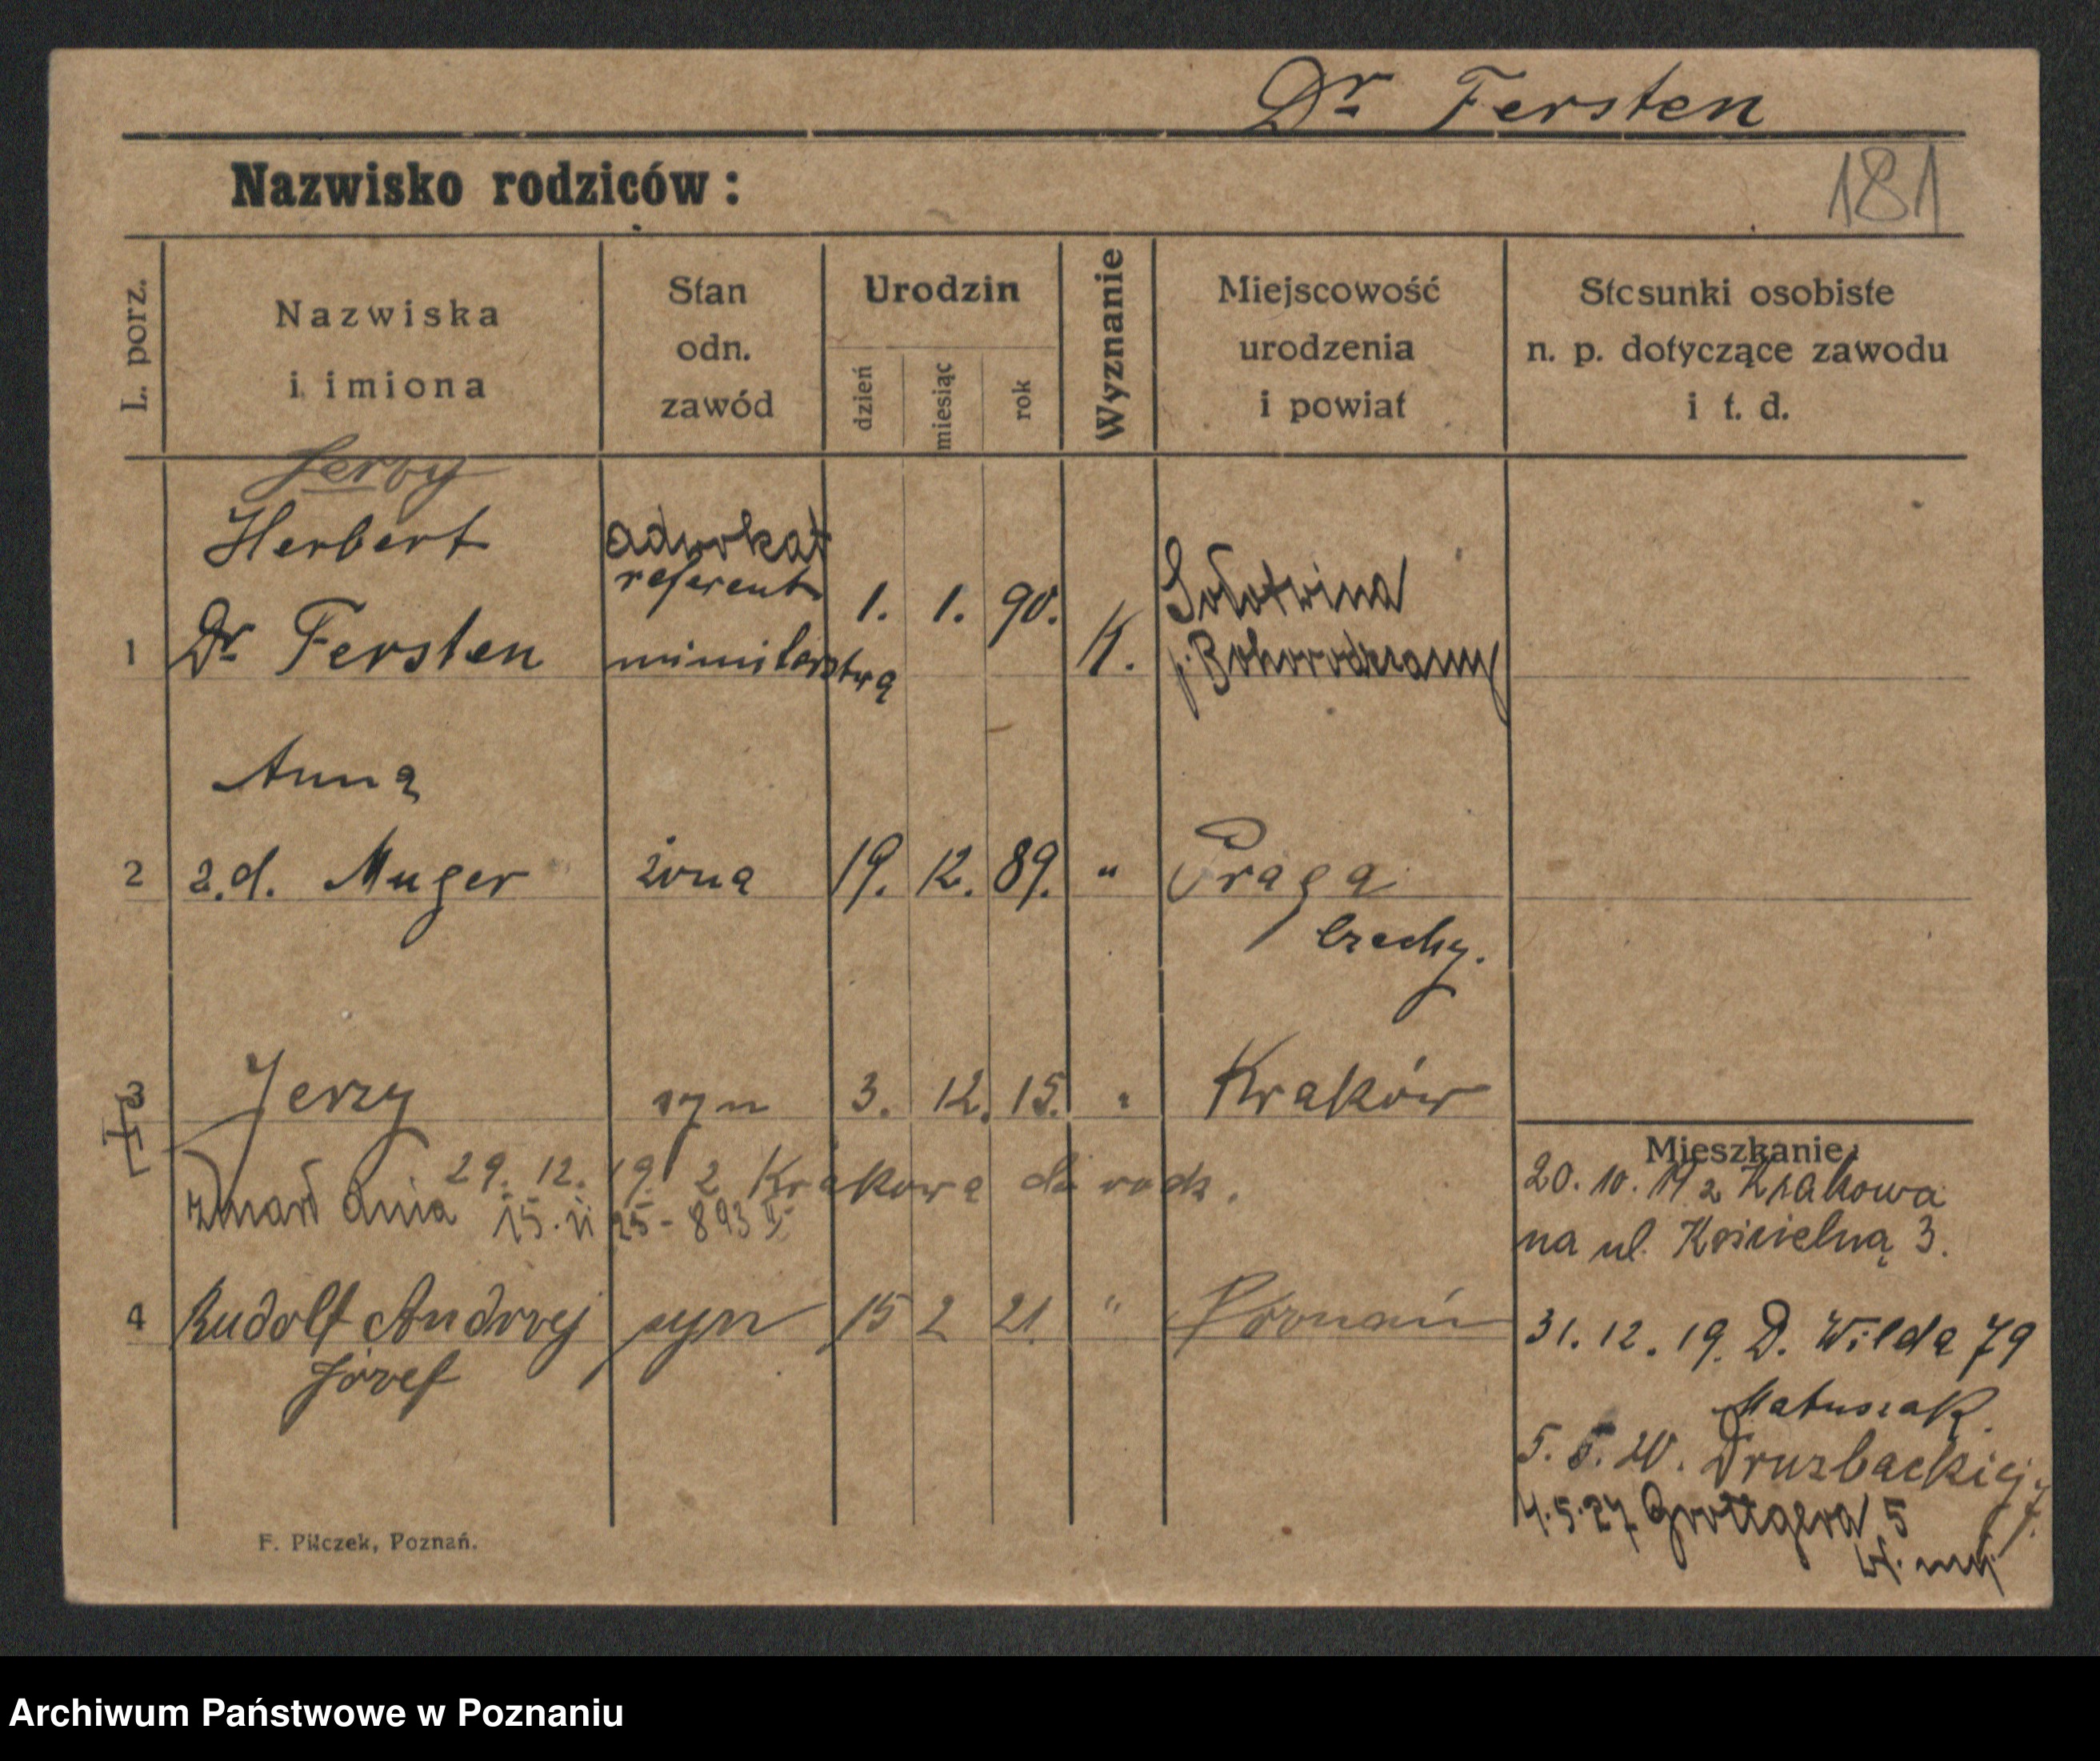 Dr Fersten
Nazwisko rodziców:
181
L. porz.
Nazwiska
i imiona
Stan
odn.
zawód
Urodzin
dzień
miesiąc
rok
Wyznanie
Miejscowość
urodzenia
i powiat
Stosunki osobiste
n. p. dotyczące zawodu
i t. d.
Jerzy
Herbert
1 Dr Fersten
adwokat
referent
ministerstwa
1. 1. 90. K.
Sołotwina
p. Bohorodczany
Anna
2 z.d. Muger żona 19. 12. 89. " Praga
Czechy.
3 Jerzy syn 3. 12. 15. " Kraków
29. 12. 19. z Krakowa do rodz.
zmarł dnia 15.II 25 - 893 II
4 Rudolf Andrzej syn 15 2 21. " Poznań
Józef
Mieszkanie:
20. 10. 19 z Krakowa
na ul. Kościelną 3.
31. 12. 19. D. Wilda 79
Matuszak.
5. 5. 20. Druzbackiej 7.
4.5.27 Grottgera 5
F. Pilczek, Poznań.
Archiwum Państwowe w Poznaniu